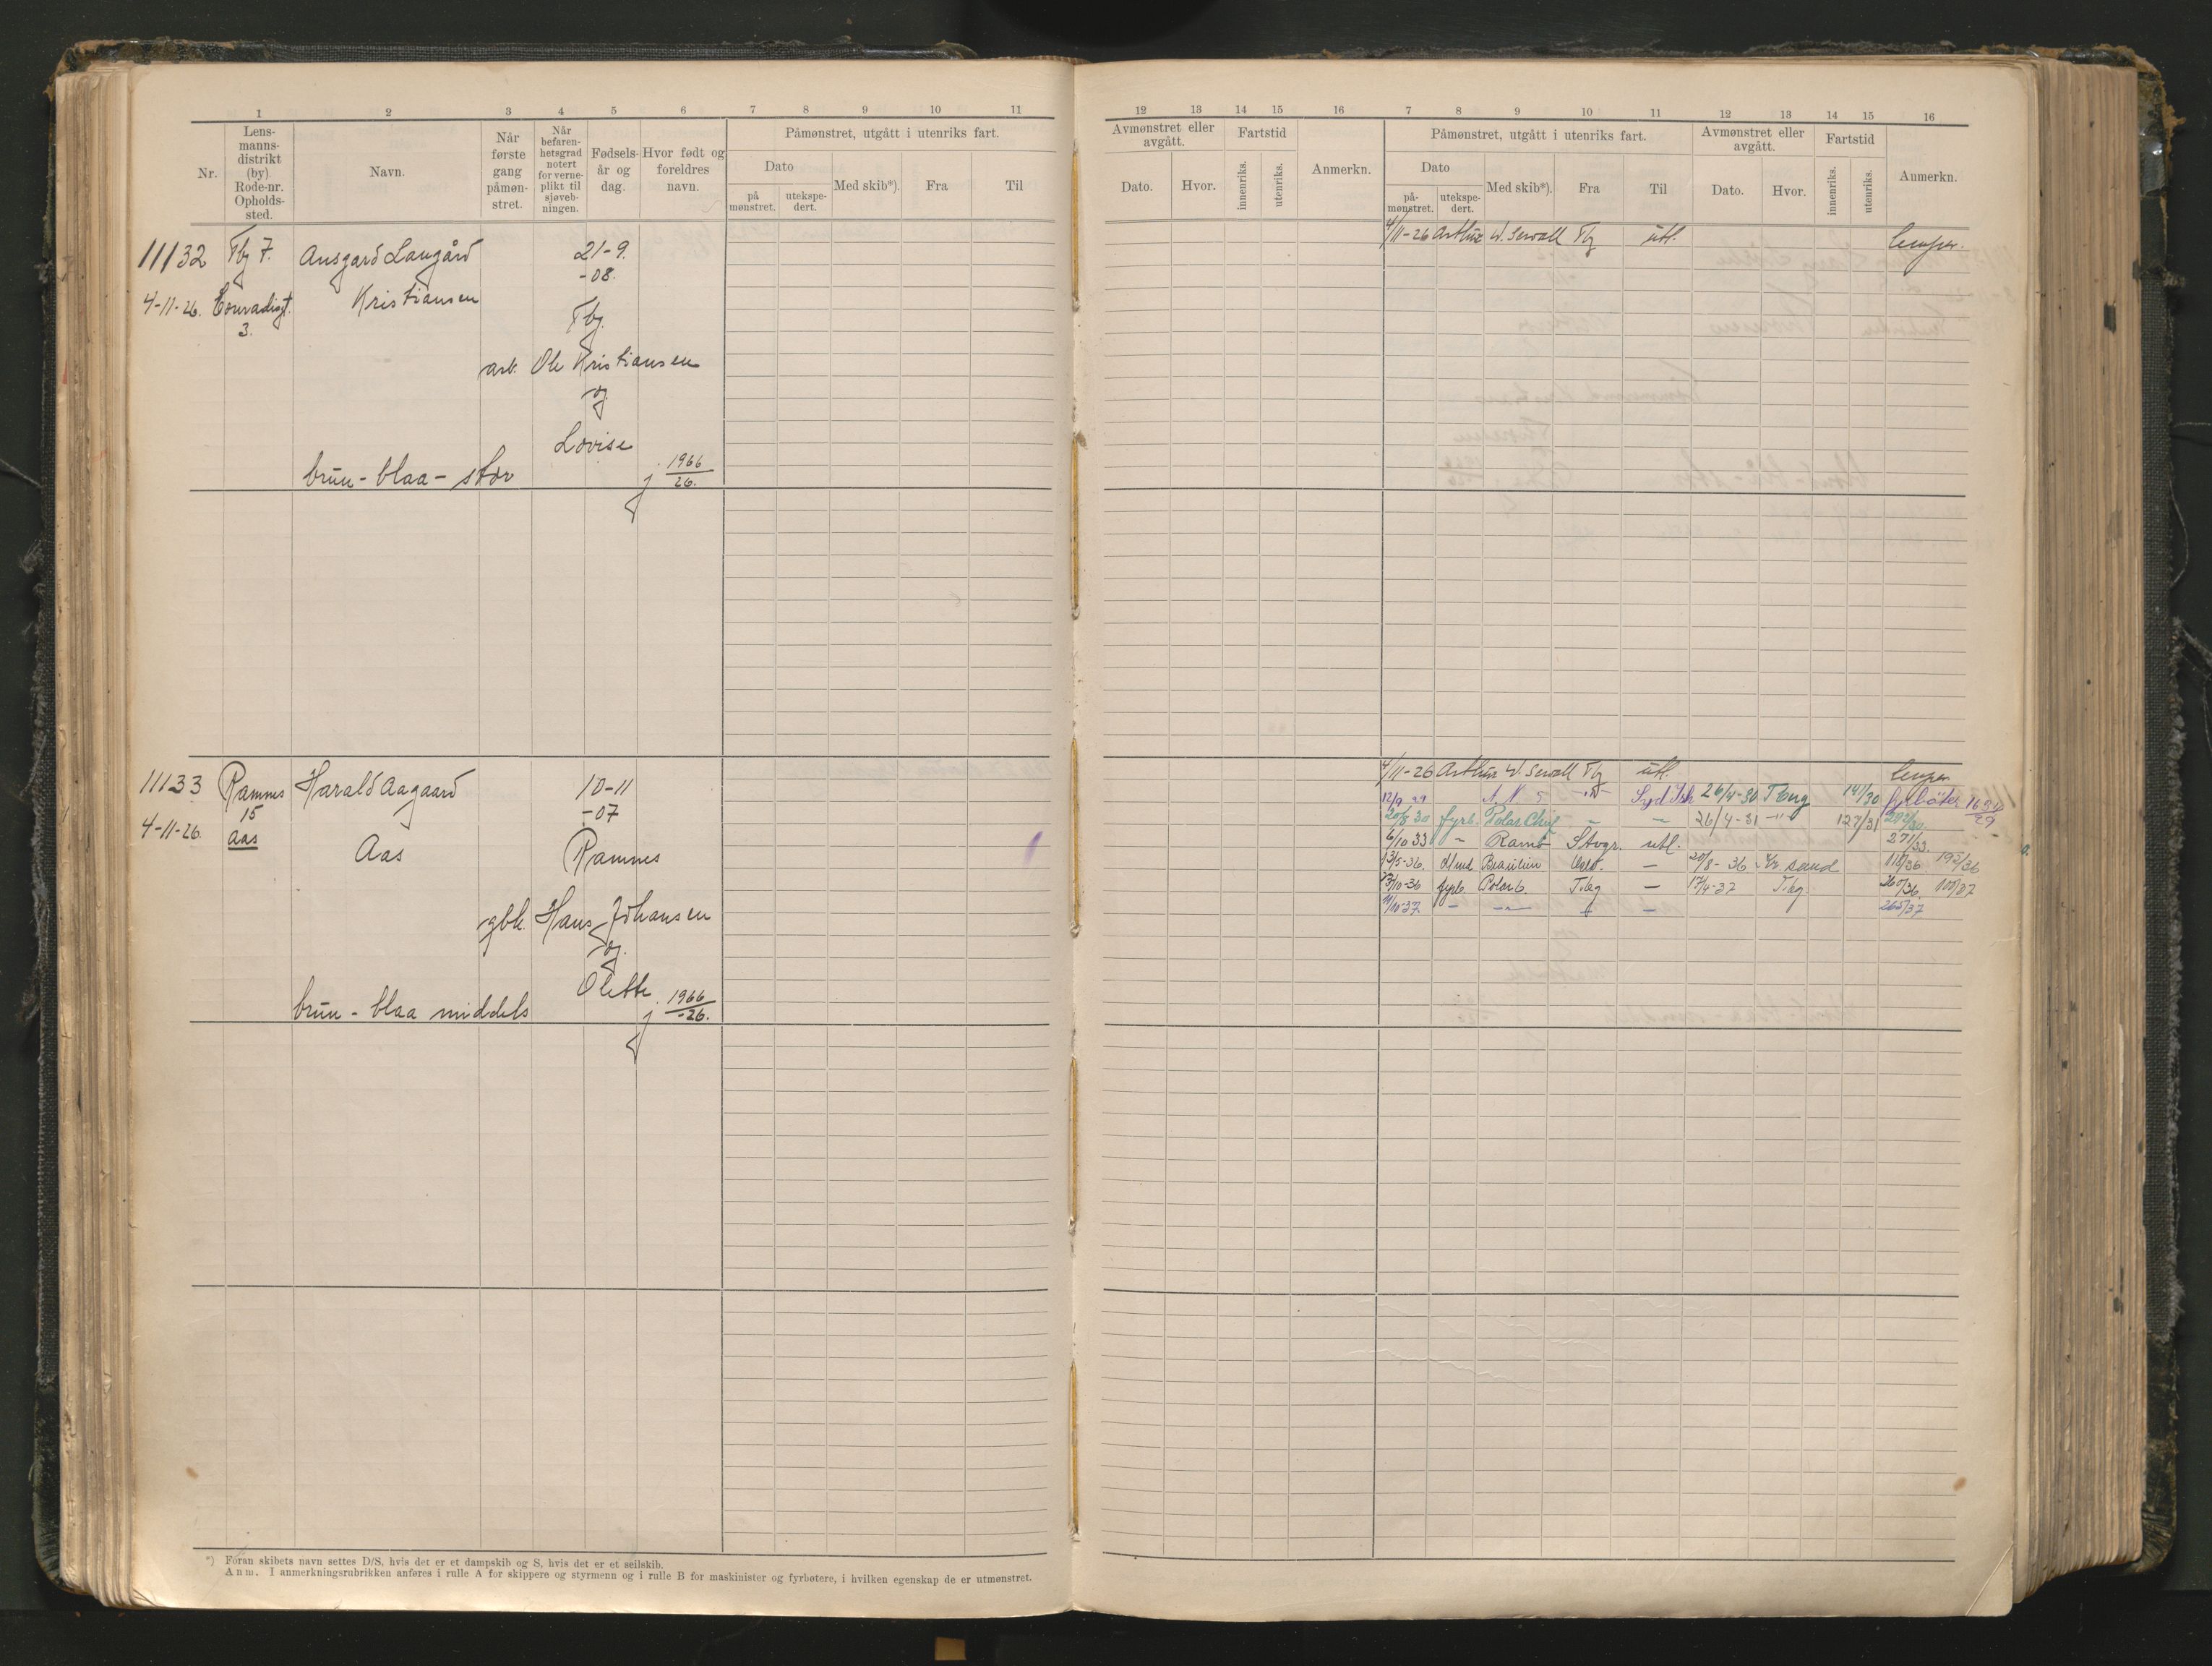 1 2 3 4 5 6 7 8 9 10 11
Nr. Lens-
manns-
distrikt
(by).
Rode-nr.
Opholds-
sted.
Navn.
Når
første
gang
påmøn-
stret.
Når
befaren-
hetsgrad
notert
for verne-
plikt til
sjøveb-
ningen.
Fødsels-
år og
dag.
Hvor født og
foreldres
navn.
Påmønstret, utgått i utenriks fart.
Dato
på
mønstret.
utekspe-
dert.
Med skib*).
Fra
Til
11132 Tbg 7. Ansgard Laugård 21-9.
-08.
4-11-26. Conradisgt. Kristiansen
3. Tbg.
arb. Ole Kristiansen
og
Lovise
brun - blaa - stor j 1966
26.
11133 Ramnes Harald Aagaard 10-11
15 -07
4-11-26. Aas
Aas Ramnes
gbk. Hans Johansen
og
Olette
brun - blaa middels j 1966
-26.
*) Foran skibets navn settes D/S, hvis det er et dampskib og S, hvis det er et seilskib.
Anm. I anmerkningsrubrikken anføres i rulle A for skippere og styrmenn og i rulle B for maskinister og fyrbøtere, i hvilken egenskap de er utmønstret.
12 13 14 15 16 7 8 9 10 11 12 13 14 15 16
Avmønstret eller
avgått.
Dato. Hvor.
Fartstid
innenriks.
utenriks.
Anmerkn.
Påmønstret, utgått i utenriks fart.
Dato
på-
mønstret.
utekspe-
dert.
Med skib*).
Fra
Til
Avmønstret eller
avgått.
Dato. Hvor.
Fartstid
innenriks.
utenriks.
Anmerkn.
4/11-26 Arthur W. Sewall Tbg utl. lemper.
4/11-26 Arthur W. Sewall Tbg utl. lemper
12/9 29 A. N. 5 -"- Syd Ish 26/4-30 Tbug 141/30 fyrböter 1684/29
20/8 30 fyrb. Polar Chief - - 26/4-31 -"- 127/31 292/30.
6/10 33 - Ramb Stvgr. utl. 271/33.
13/5-36. d/md Beaulieu Oslo. - 20/8-36 Kr. sand 118/36 192/36
23/10-36 fyrb. Polar 6. Tbg - 17/4-37 Tbg 260/36. 100/37
11/10-37. - -"- - - 265/37